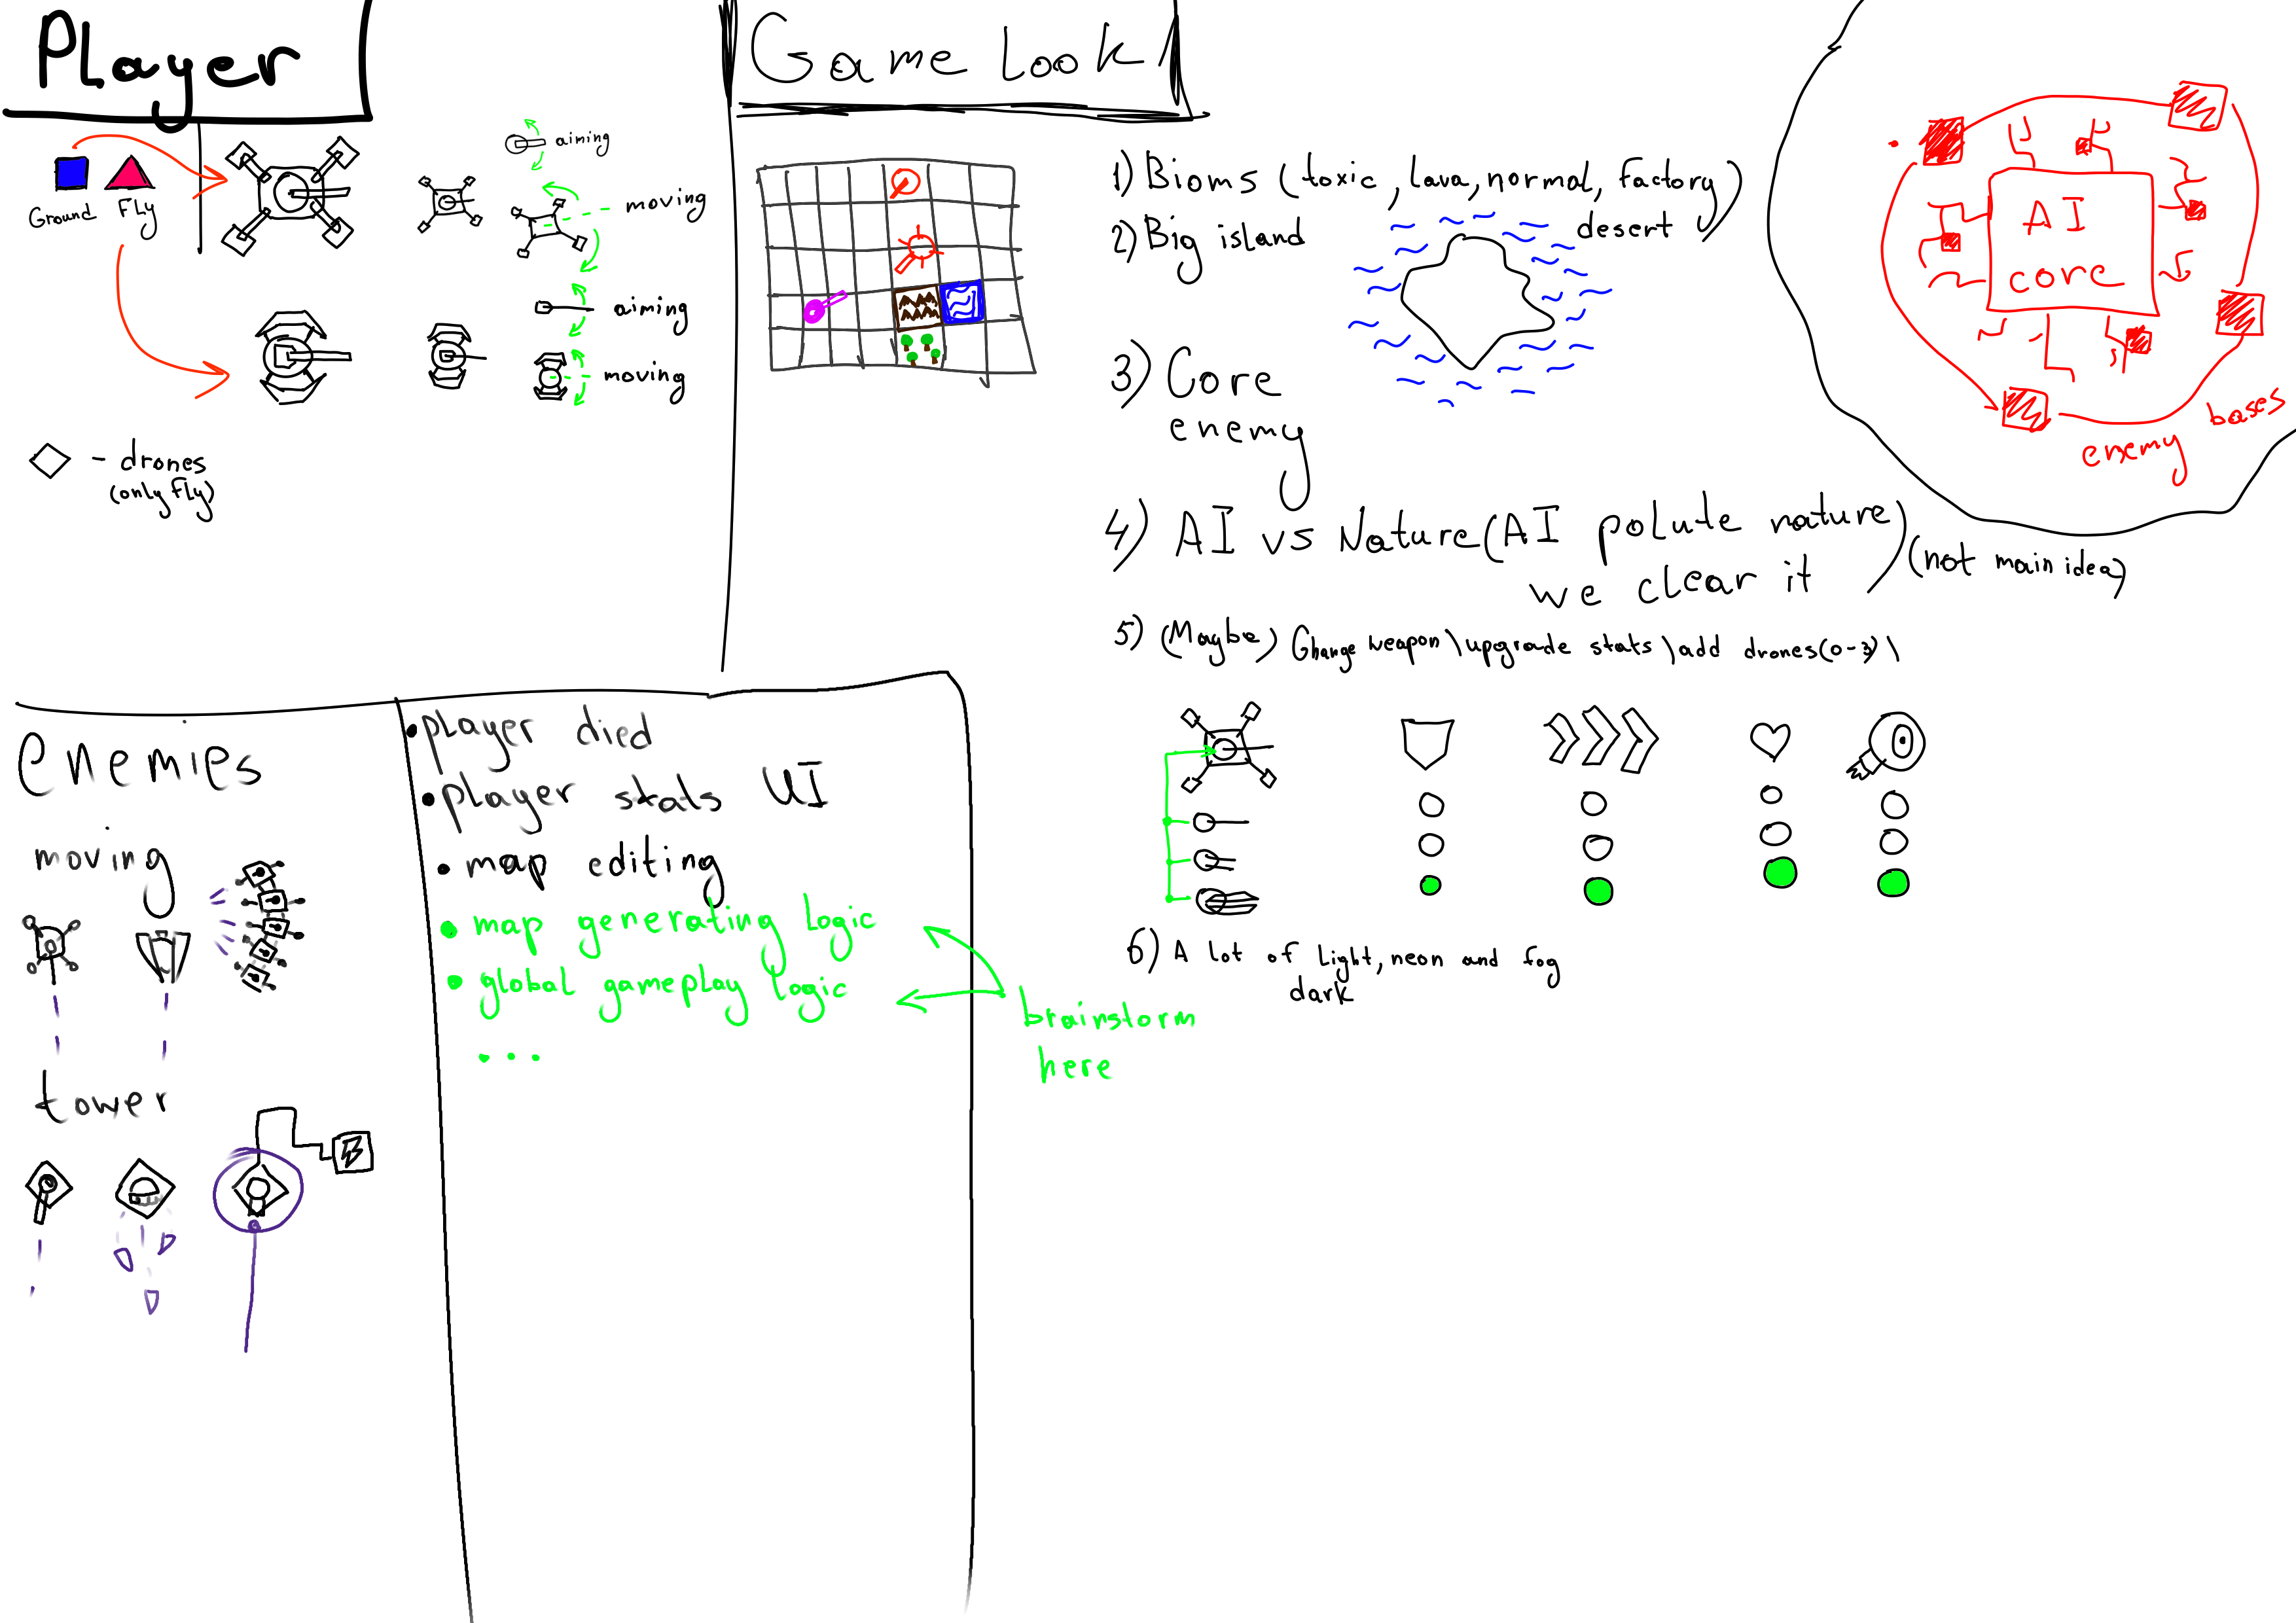 PLayer
Ground
FLy
aiming
moving
aiming
moving
- drones
(only fly)
Game Look
1) Bioms (toxic, Lava, normal, factory)
desert
2) Big island
3) Core
enemy
AI
core
enemy bases
4) AI vs Nature (AI polute nature)
we clear it
(not main idea)
5) (Maybe) Change weapon \ upgrade stats \ add drones (0-3) \
6) A Lot of Light, neon and fog
dark
enemies
moving
tower
• player died
• player stats UI
• map editing
• map generating Logic
• global gameplay Logic
...
brainstorm
here